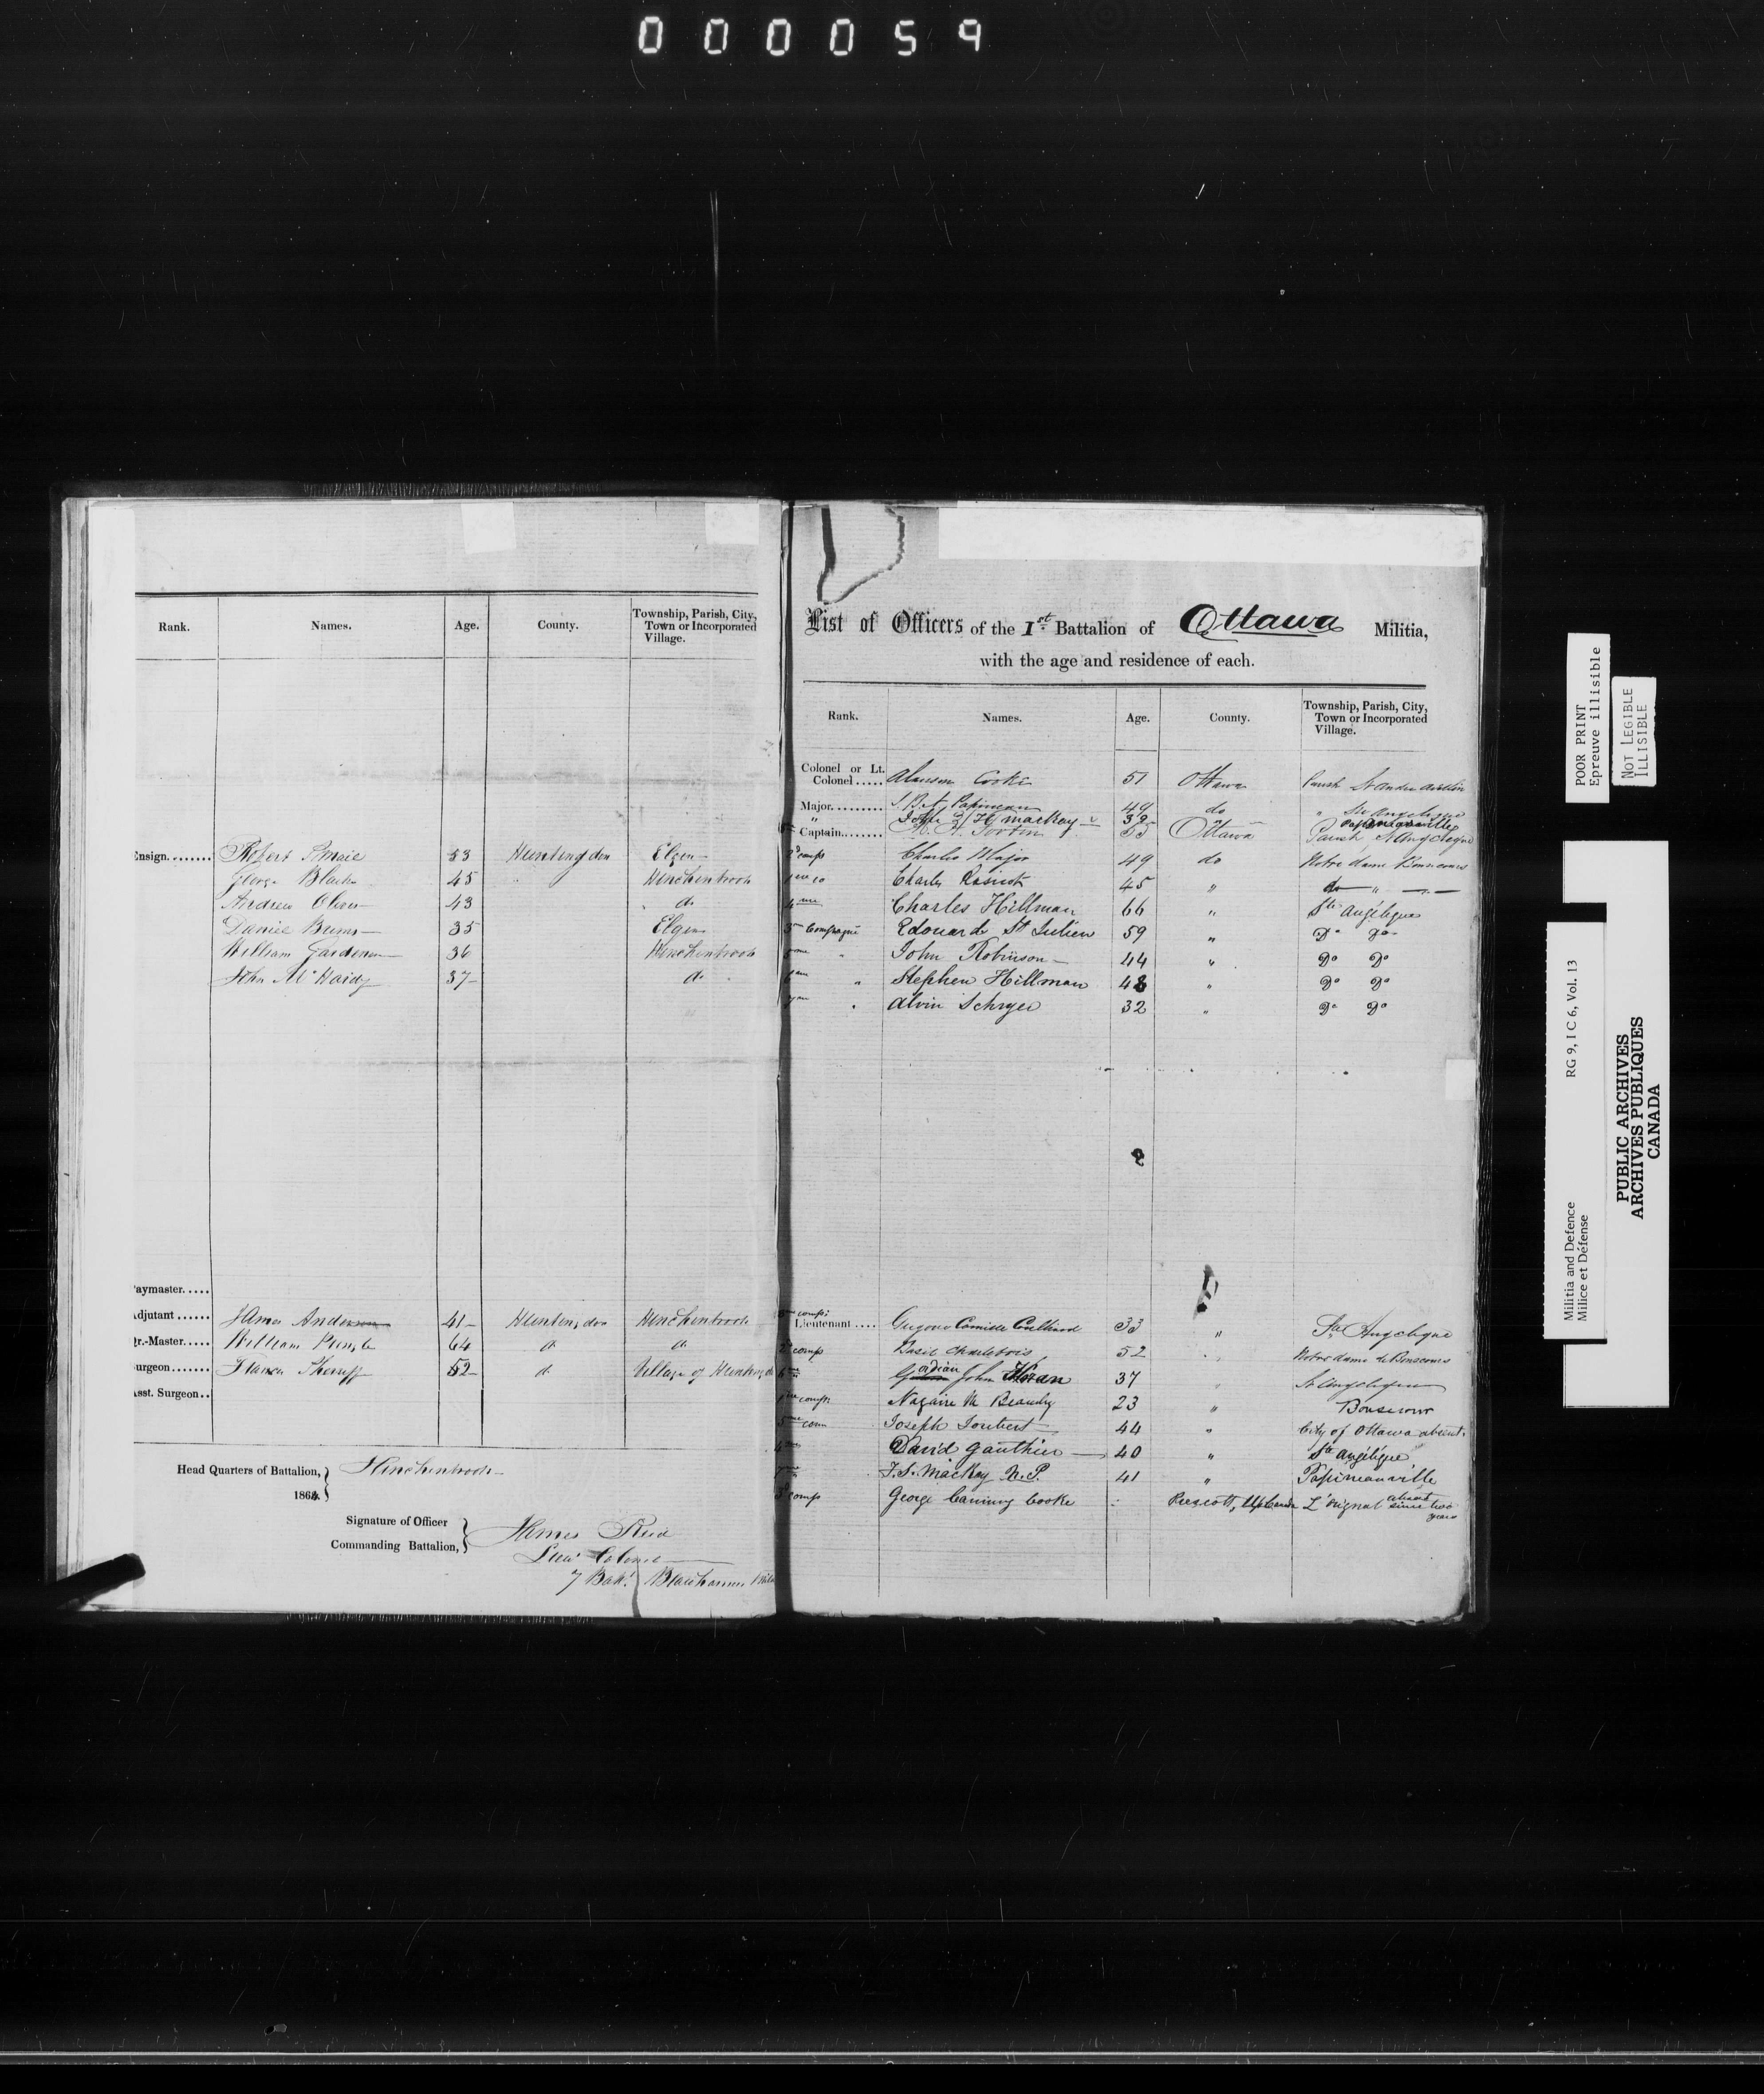 000059
Rank. Names. Age. County. Township, Parish, City, Town or Incorporated Village.
Ensign........ Robert Smaie 53 Huntingdon Elgin
George Black 45 " Hinchinbrook
Andrew Oliver 43 do
Daniel Brims 35 Elgin
William Gardener 36 Hinchinbrook
John McHardy 37 do
Paymaster.....
Adjutant ...... James Anderson 41 Huntingdon Hinchinbrook
Qr.-Master..... William Pringle 64 do do
Surgeon....... Francis Sherriff 52 do Village of Huntingdon
Asst. Surgeon..
Head Quarters of Battalion, } Hinchinbrook
1864. }
Signature of Officer
Commanding Battalion, } James Reid
Lieu Colonel
7 Batt. Beauharnois Militia
List of Officers of the 1st Battalion of Ottawa Militia,
with the age and residence of each.
Rank. Names. Age. County. Township, Parish, City, Town or Incorporated Village.
Colonel or Lt. Colonel..... Alanson Cooke 51 Ottawa Parish St André Avellin
Major......... J. B. N. Papineau 49 do " Ste Angelique
" H Mackay 39 " Papineauville
Captain........ 55 Ottawa Parish St Angelique
2d comps Charles Major 49 do Notre dame Bonsecours
1ere co Charles 45 " do "
4me Charles Hillman 66 " Ste Angélique
3me Compagnie Edouard St Julien 59 " Do Do
5me " John Robinson 44 " Do Do
6me " Stephen Hillman 48 " Do Do
7me " Alvin Schryer 32 " Do Do
comps:
Lieutenant .... Camille 33 " Ste Angelique
2d comps Basil Charlebois 52 " Notre dame de Bonsecours
6me John Horan 37 " St Angelique
1ere comps Nazaire M Beaudry 23 " Bonsecour
5me com Joseph Joubert 44 " City of Ottawa absent.
4me David Gauthier 40 " Ste Angélique
7me J. S. Mackay N.P. 41 " Papineauville
3 comps George Canning Cooke Prescott, Up Canada L'orignal absent since two years
POOR PRINT
Epreuve illisible
NOT LEGIBLE
ILLISIBLE
Militia and Defence RG 9, I C 6, Vol. 13
Milice et Défense
PUBLIC ARCHIVES
ARCHIVES PUBLIQUES
CANADA